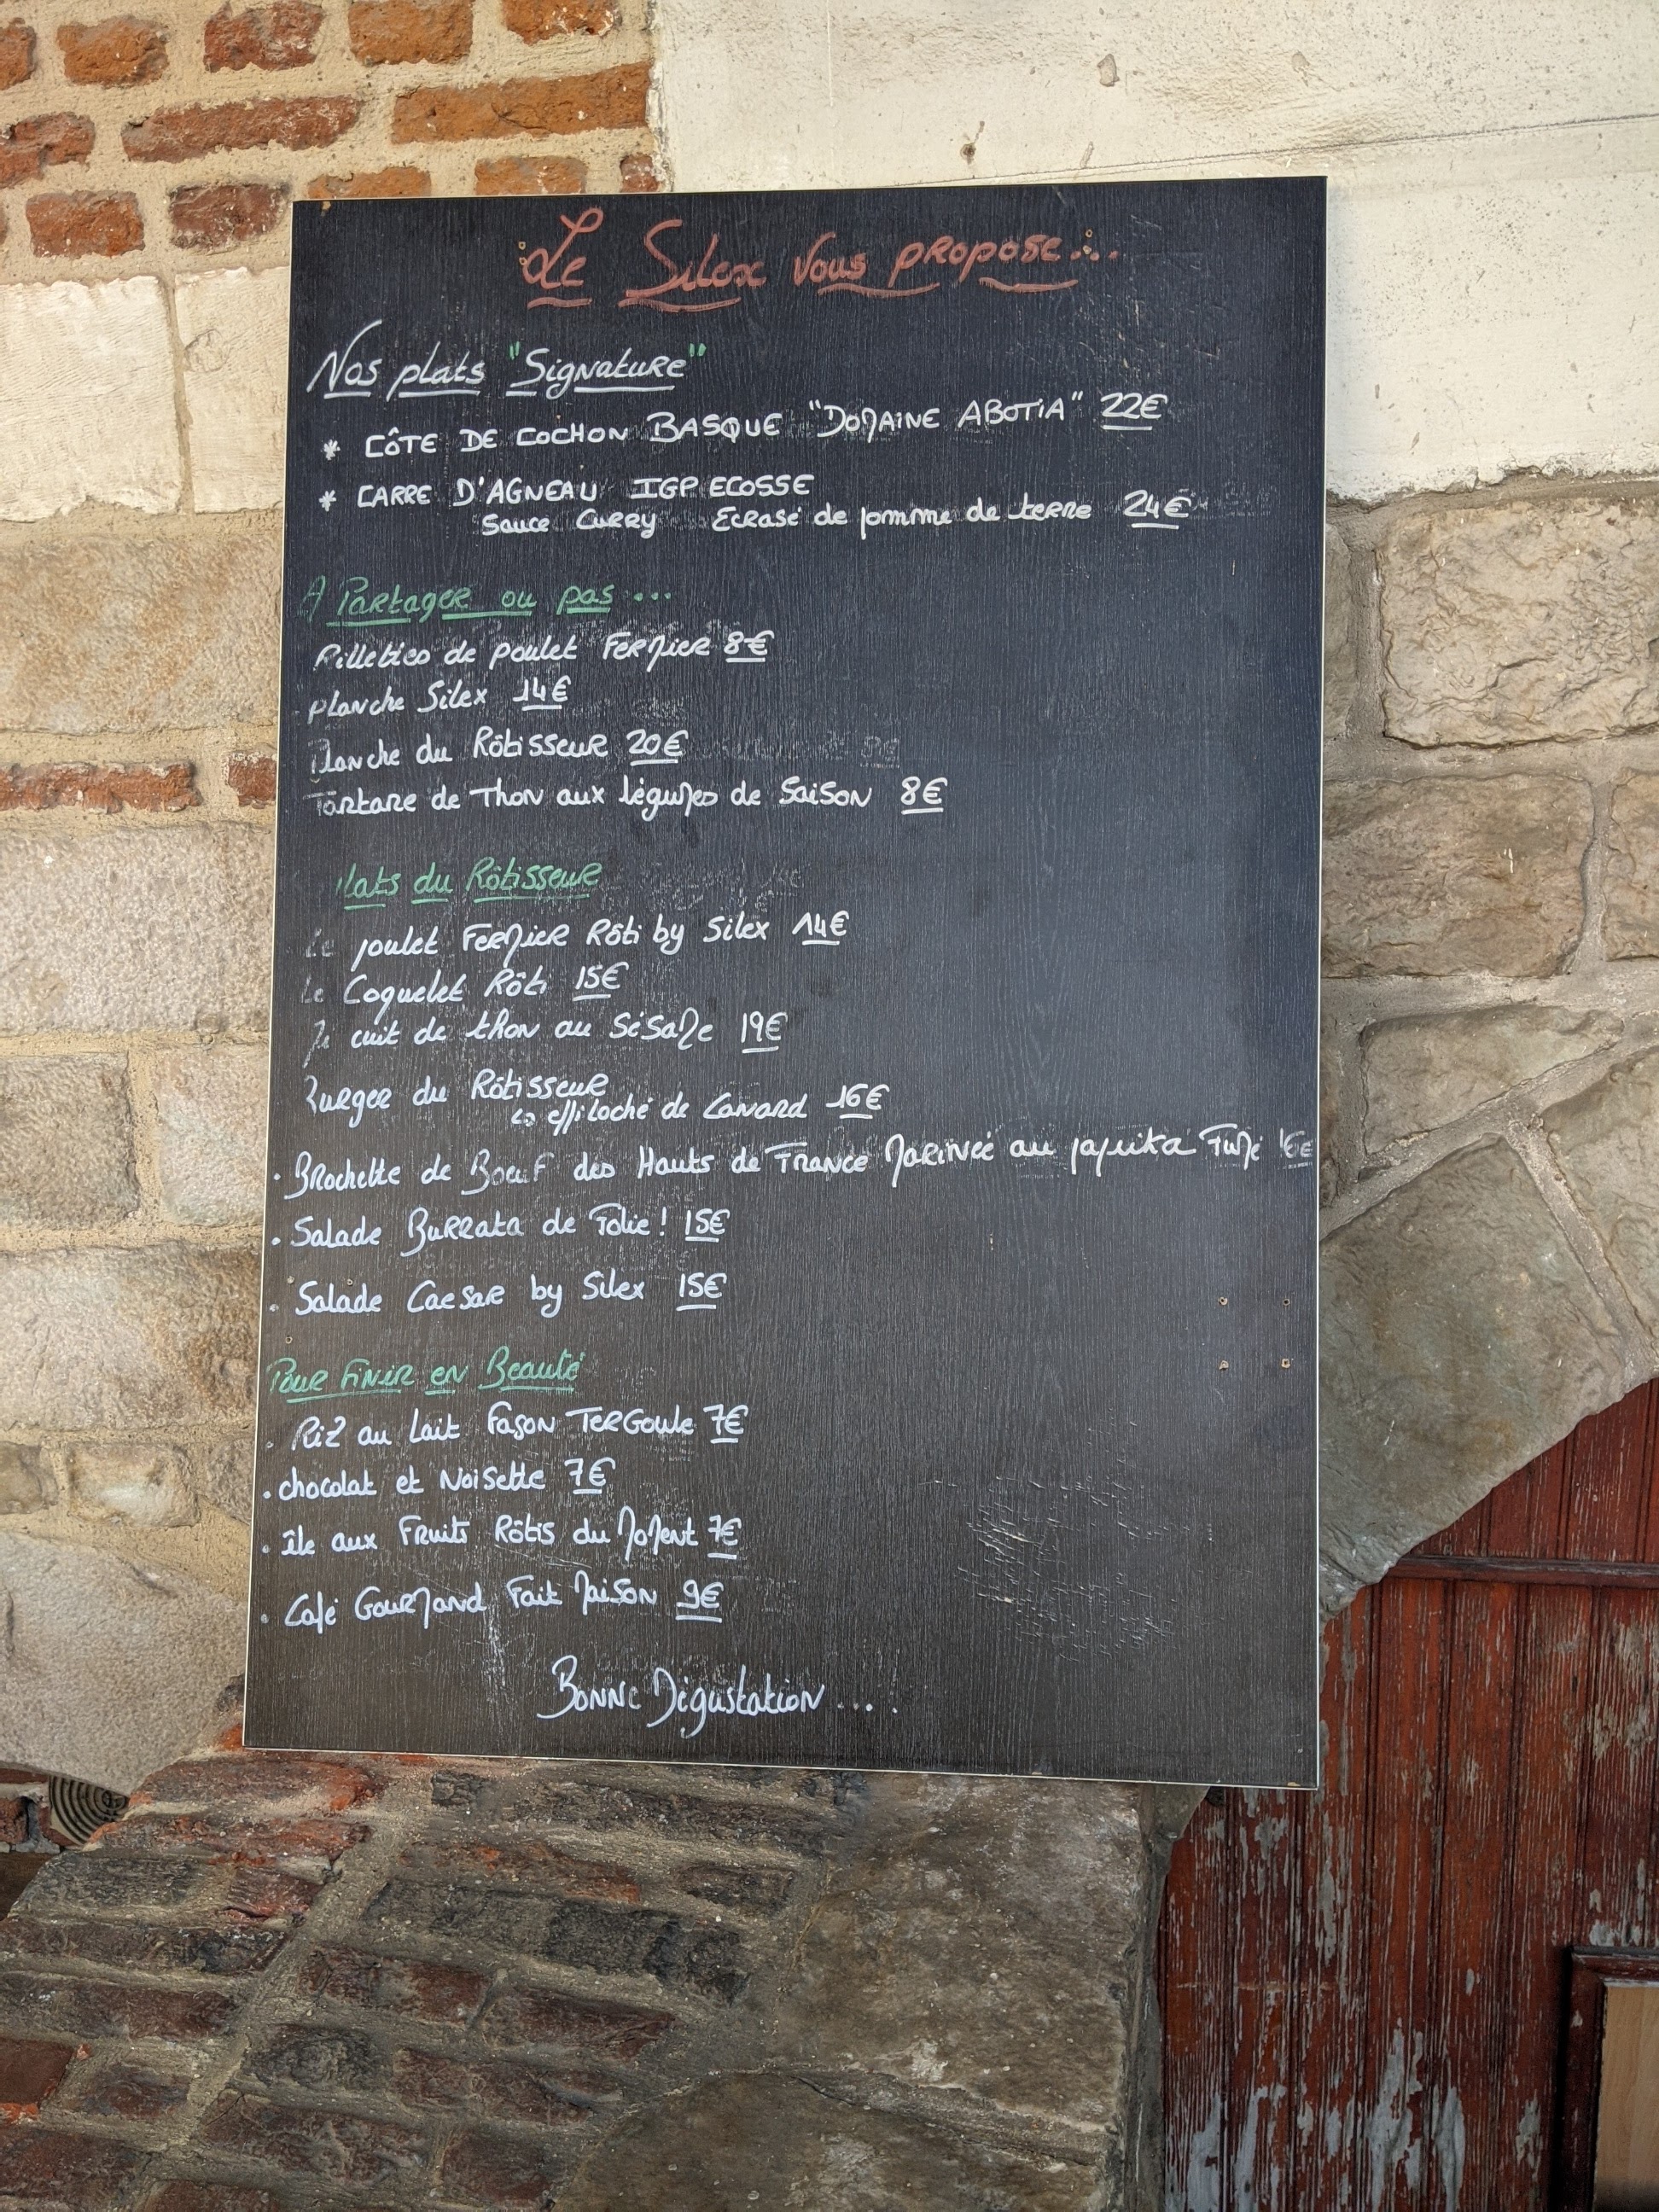 Le Silex vous propose...
Nos plats "Signature"
* CÔTE DE COCHON BASQUE "DOMAINE ABOTIA" 22€
* CARRE D'AGNEAU IGP ECOSSE
Sauce Curry Ecrasé de pomme de terre 24€
A Partager ou pas...
Rillettes de poulet Fermier 8€
planche Silex 14€
Planche du Rôtisseur 20€
Tartare de Thon aux légumes de Saison 8€
lats du Rôtisseur
Le poulet Fermier Rôti by Silex 14€
Le Coquelet Rôti 15€
cuit de thon au Sésame 19€
Burger du Rôtisseur
↳ effiloché de Canard 16€
. Brochette de Boeuf des Hauts de France Marinée au paprika Fumé 16€
. Salade Burrata de Folie! 15€
. Salade Caesar by Silex 15€
Pour Finir en Beauté
. Riz au Lait Façon TerGoule 7€
. chocolat et Noisette 7€
. île aux Fruits Rôtis du Moment 7€
. Café Gourmand Fait Maison 9€
Bonne Dégustation....